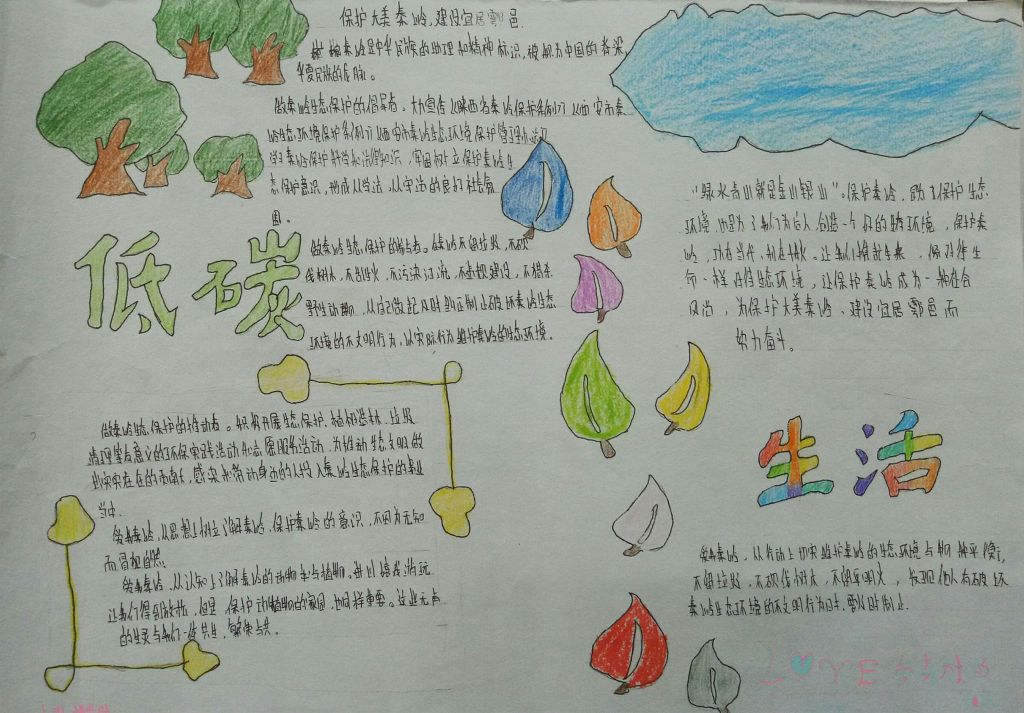 保护大美秦岭,建设宜居鄠邑.
秦岭是中华民族的地理和精神标识,被视为中国的脊梁,
华夏民族的龙脉。
做秦岭生态保护的倡导者。大力宣传《陕西省秦岭保护条例》《西安市秦
岭生态环境保护条例》《西安市秦岭生态环境保护管理办法》
学习秦岭保护科学和法律知识,牢固树立保护秦岭生
态保护意识,形成从学法,从守法的良好社会氛
围。
低碳
做秦岭生态保护的践行者。做到不留垃圾,不砍
伐树木,不乱生火,不污染河流,不违规建设,不捕杀
野生动物,从自己做起及时纠正制止破坏秦岭生态
环境的不文明行为,以实际行为维护秦岭的生态环境.
"绿水青山就是金山银山"。保护秦岭,既为了保护生态
环境,也是为了我们为后人创造一个好的生存环境,保护秦
岭,功在当代,利在千秋,让我们携起手来,像保护生
命一样保护生态环境,让保护秦岭成为一种社会
风尚,为保护大美秦岭,建设宜居鄠邑而
努力奋斗。
做秦岭生态保护的推动者。积极开展生态保护,植树造林,垃圾
清理等有意义的环保实践活动和志愿服务活动,为推动生态文明做
出实实在在的贡献,感染和带动身边的人投入秦岭生态保护的事业
当中.
爱秦岭,从思想上树立了解秦岭,保护秦岭的意识,不因为无知
而冒犯自然.
爱秦岭,从认知上了解秦岭的动物和与植物。
让我们得到放松,但是,保护动植物的家园,也同样重要。这些无声
的生灵与我们一样共生,
生活
爱秦岭,从行动上切实维护秦岭的生态环境与物种平衡,
不留垃圾,不砍伐树木,不留明火,发现他人有破坏
秦岭生态环境的不文明行为时,要及时制止.